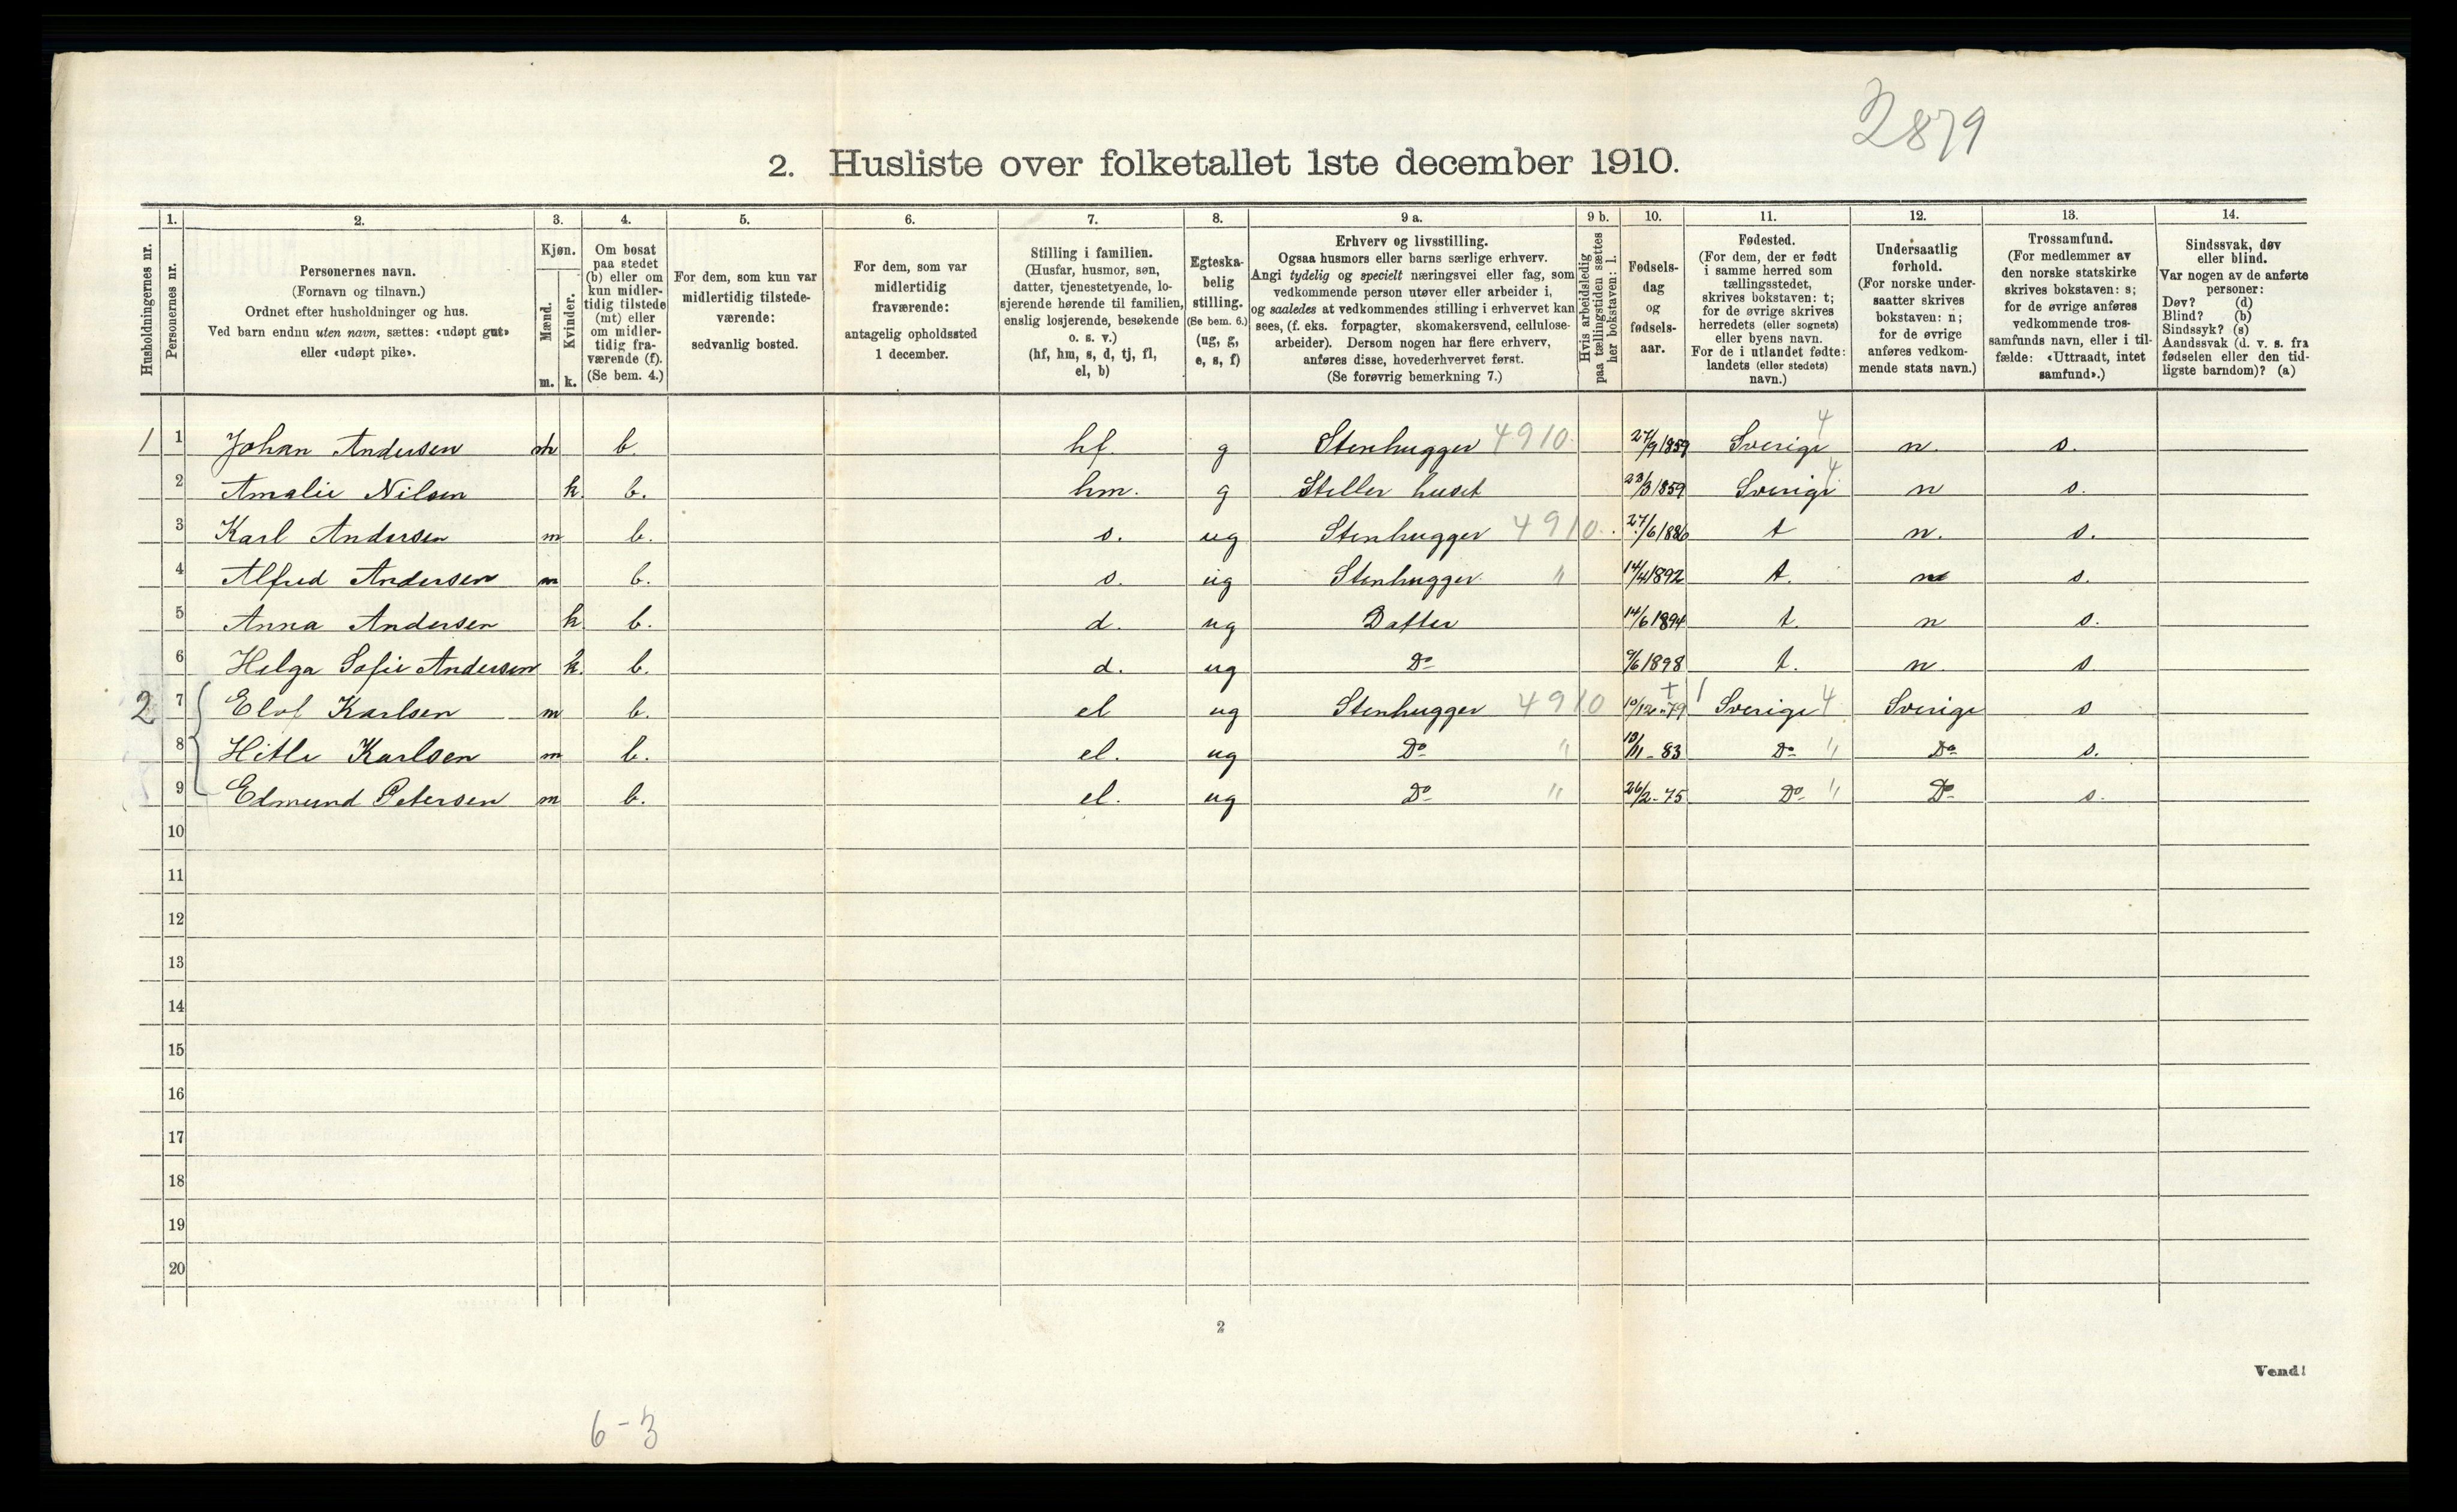 2879
2. Husliste over folketallet 1ste december 1910.
Husholdningernes nr.
1.
Personernes nr.
2.
Personernes navn.
(Fornavn og tilnavn.)
Ordnet efter husholdninger og hus.
Ved barn endnu uten navn, sættes: «udøpt gut»
eller «udøpt pike».
3.
Kjøn.
Mænd.
Kvinder.
m. k.
4.
Om bosat
paa stedet
(b) eller om
kun midler-
tidig tilstede
(mt) eller
om midler-
tidig fra-
værende (f).
(Se bem. 4.)
5.
For dem, som kun var
midlertidig tilstede-
værende:
sedvanlig bosted.
6.
For dem, som var
midlertidig
fraværende:
antagelig opholdssted
1 december.
7.
Stilling i familien.
(Husfar, husmor, søn,
datter, tjenestetyende, lo-
sjerende hørende til familien,
enslig losjerende, besøkende
o. s. v.)
(hf, hm, s, d, tj, fl,
el, b)
8.
Egteska-
belig
stilling.
(Se bem. 6.)
(ug, g,
e, s, f)
9 a.
Erhverv og livsstilling.
Ogsaa husmors eller barns særlige erhverv.
Angi tydelig og specielt næringsvei eller fag, som
vedkommende person utøver eller arbeider i,
og saaledes at vedkommendes stilling i erhvervet kan
sees, (f. eks. forpagter, skomakersvend, cellulose-
arbeider). Dersom nogen har flere erhverv,
anføres disse, hovederhvervet først.
(Se forøvrig bemerkning 7.)
9 b.
Hvis arbeidsledig
paa tællingstiden sættes
her bokstaven: l.
10.
Fødsels-
dag
og
fødsels-
aar.
11.
Fødested.
(For dem, der er født
i samme herred som
tællingsstedet,
skrives bokstaven: t;
for de øvrige skrives
herredets (eller sognets)
eller byens navn.
For de i utlandet fødte:
landets (eller stedets)
navn.)
12.
Undersaatlig
forhold.
(For norske under-
saatter skrives
bokstaven: n;
for de øvrige
anføres vedkom-
mende stats navn.)
13.
Trossamfund.
(For medlemmer av
den norske statskirke
skrives bokstaven: s;
for de øvrige anføres
vedkommende tros-
samfunds navn, eller i til-
fælde: «Uttraadt, intet
samfund».)
14.
Sindssvak, døv
eller blind.
Var nogen av de anførte
personer:
Døv? (d)
Blind? (b)
Sindssyk? (s)
Aandssvak (d. v. s. fra
fødselen eller den tid-
ligste barndom)? (a)
1 1 Johan Andersen m b. hf. g Stenhugger 4910 27/9 1859 Sverige 4 n. s.
2 Amalie Nilsen k. b. hm. g Steller huset 23/3 1859 Sverige 4 n s.
3 Karl Andersen m b. s. ug Stenhugger 4910 27/6 1886 t n. s.
4 Alfred Andersen m b. s. ug Stenhugger " 14/4 1892 t. n s.
5 Anna Andersen k. b. d. ug Datter 14/6 1894 t. n s.
6 Helga Sofie Andersen k. b. d. ug Do 9/6 1898 t. n. s
2 7 Elof Karlsen m b. el ug Stenhugger 4910 10/12 - 79 Sverige 4 Sverige s
8 Hitle Karlsen m b. el. ug Do " 13/11 - 83 Do " Do s.
9 Edmund Petersen m b. el. ug Do " 26/2 - 75 Do " Do s.
10
11
12
13
14
15
16
17
18
19
20
2
Vend!
6 - 3